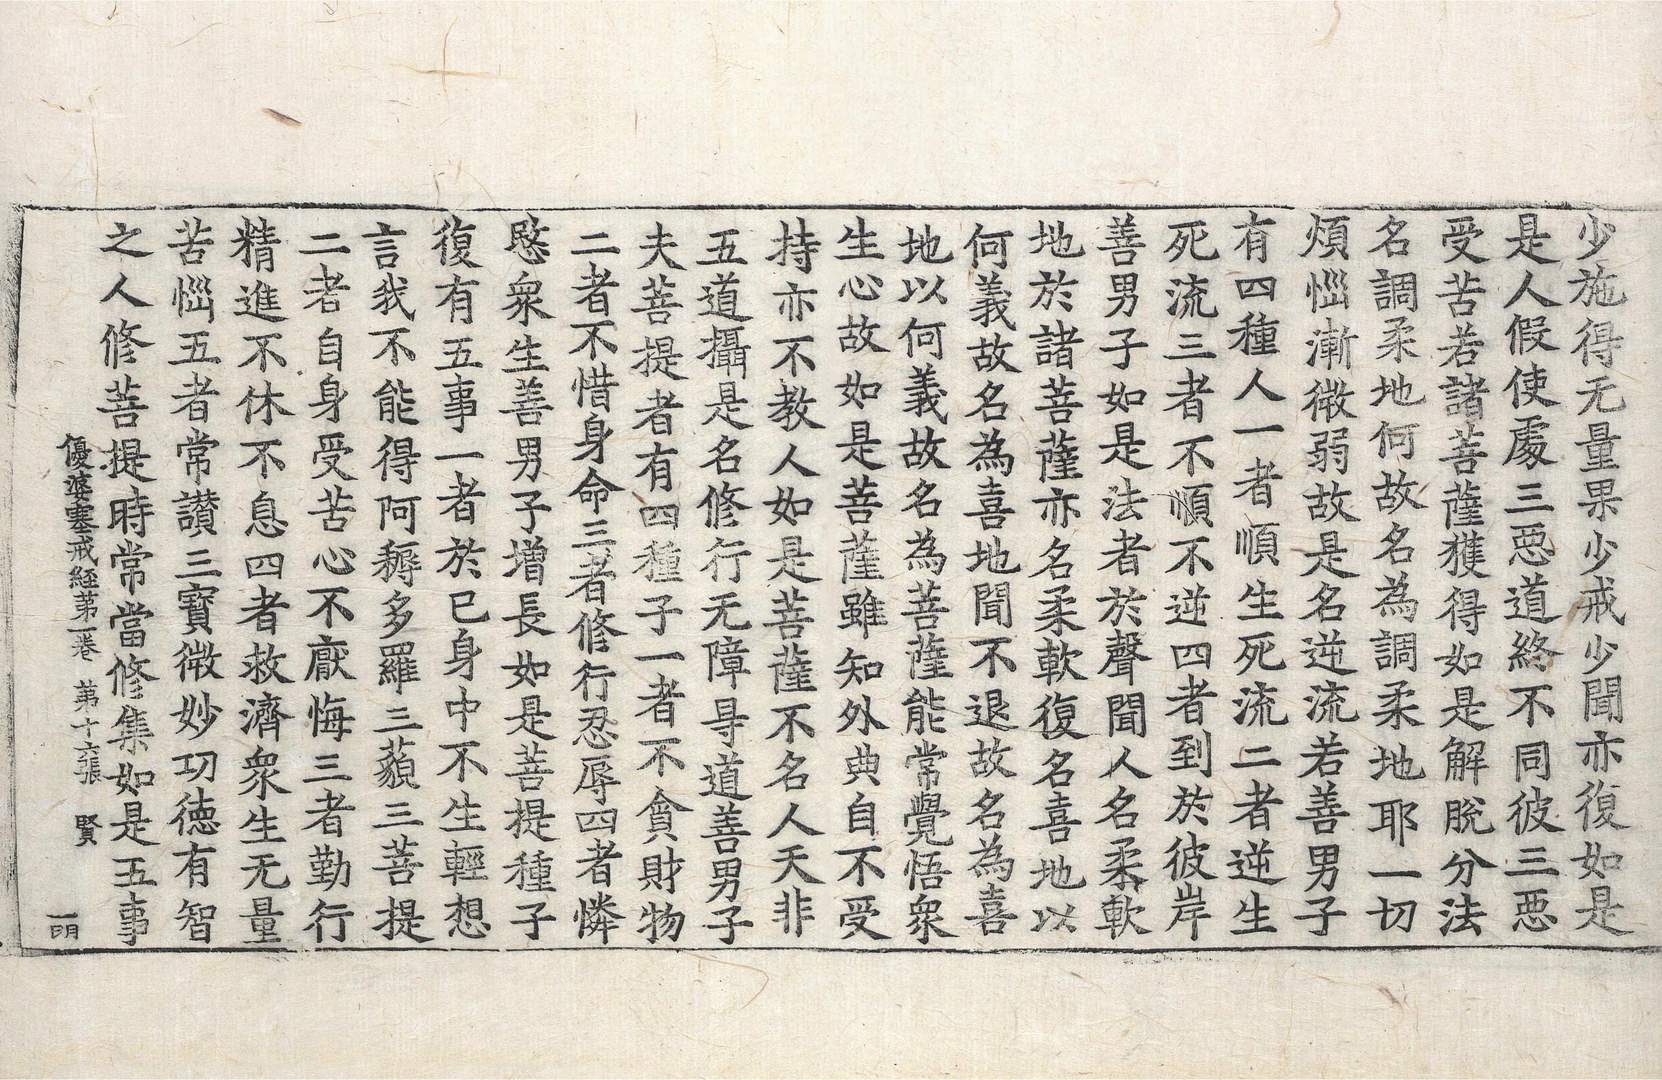 少施得无量果少戒少聞亦復如是
是人假使處三惡道終不同彼三惡
受苦若諸菩薩獲得如是解脫分法
名調柔地何故名為調柔地耶一切
煩惱漸微弱故是名逆流若善男子
有四種人一者順生死流二者逆生
死流三者不順不逆四者到於彼岸
善男子如是法者於聲聞人名柔軟
地於諸菩薩亦名柔軟復名喜地以
何義故名為喜地聞不退故名為喜
地以何義故名為菩薩能常覺悟衆
生心故如是菩薩雖知外典自不受
持亦不教人如是菩薩不名人天非
五道攝是名修行无障㝵道善男子
夫菩提者有四種子一者不貪財物
二者不惜身命三者修行忍辱四者憐
愍衆生善男子增長如是菩提種子
復有五事一者於已身中不生輕想
言我不能得阿耨多羅三藐三菩提
二者自身受苦心不厭悔三者勤行
精進不休不息四者救濟衆生无量
苦惱五者常讃三寶微妙功徳有智
之人修菩提時常當修集如是五事
優婆塞戒經第一卷 第十六張 賢
一明